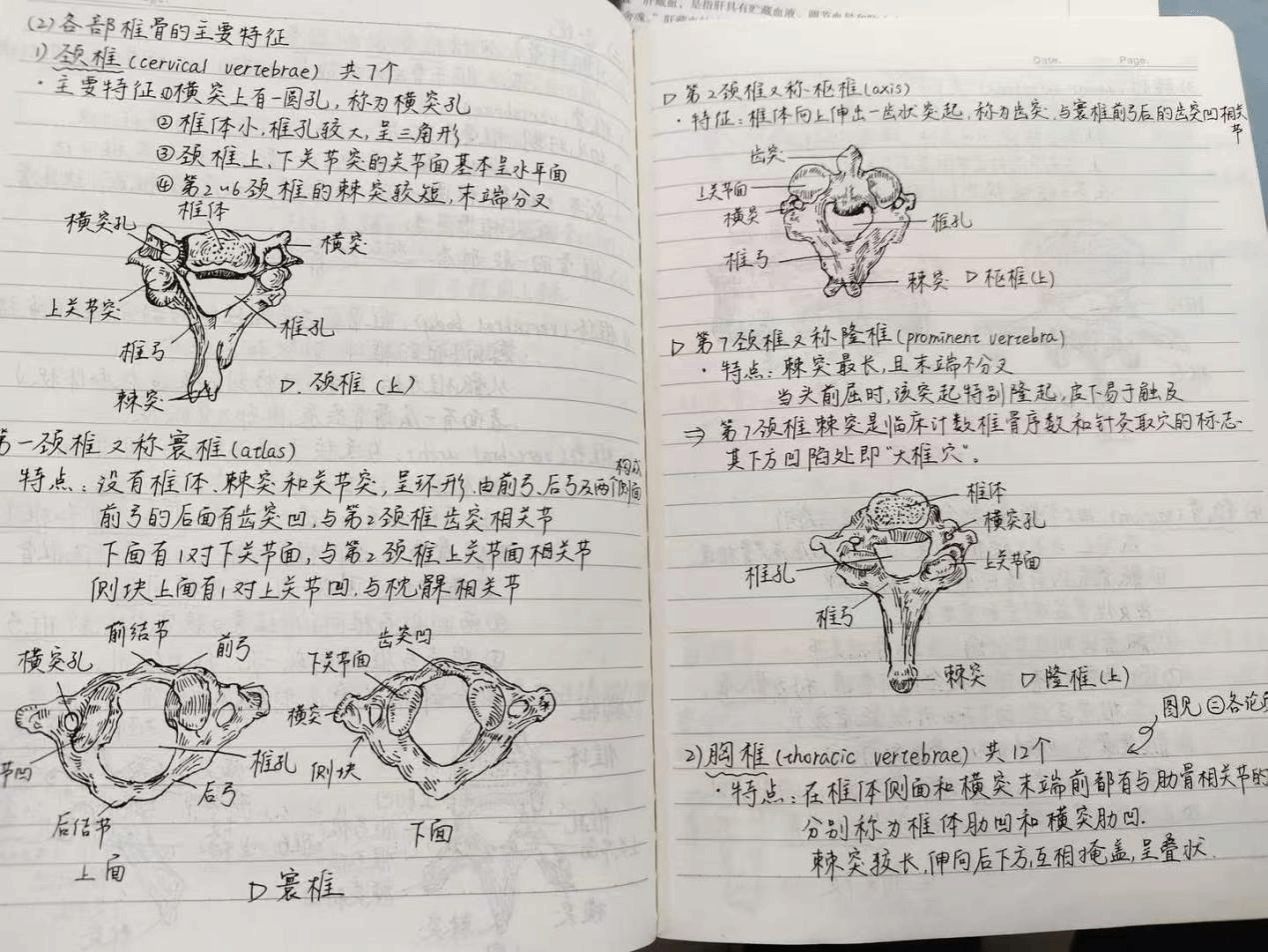 (2)各部椎骨的主要特征
1)颈椎(cervical vertebrae) 共7个
·主要特征①横突上有一圆孔,称为横突孔
②椎体小,椎孔较大,呈三角形
③颈椎上,下关节突的关节面基本呈水平面
④第2~6颈椎的棘突较短,末端分叉
椎体
横突孔
横突
上关节突
椎孔
椎弓
棘突
D.颈椎(上)
第一颈椎又称寰椎(atlas)
特点:没有椎体、棘突和关节突,呈环形.由前弓、后弓及两个侧面构成
前弓的后面有齿突凹,与第2颈椎齿突相关节
下面有1对下关节面,与第2颈椎上关节面相关节
侧块上面有1对上关节凹,与枕髁相关节
前结节
前弓
横突孔
节凹
椎孔
后弓
后结节
上面
齿突凹
下关节面
横突
侧块
下面
D寰椎
肝藏血,是指肝具有贮藏血液、
Date. Page.
D第2颈椎又称枢椎(axis)
·特征:椎体向上伸出一齿状突起,称为齿突,与寰椎前弓后的齿突凹相关节
齿突
上关节面
横突
椎孔
椎弓
棘突
D枢椎(上)
D第7颈椎又称隆椎(prominent vertebra)
·特点:棘突最长,且末端不分叉
当头前屈时,该突起特别隆起,皮下易于触及
⇒第7颈椎棘突是临床计数椎骨序数和针灸取穴的标志.
其下方凹陷处即"大椎穴"。
椎体
横突孔
上关节面
椎孔
椎弓
棘突
D隆椎(上)
图见㊂各论
2)胸椎(thoracic vertebrae)共12个
·特点:在椎体侧面和横突末端前都有与肋骨相关节的
分别称为椎体肋凹和横突肋凹.
棘突较长,伸向后下方,互相掩盖,呈叠状.